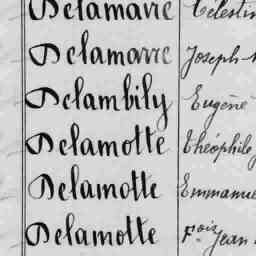 Delamarre Célestin
Delamarre Joseph
Delambily Eugène
Delamotte Théophile
Delamotte Emmanuel
Delamotte Fois Jean